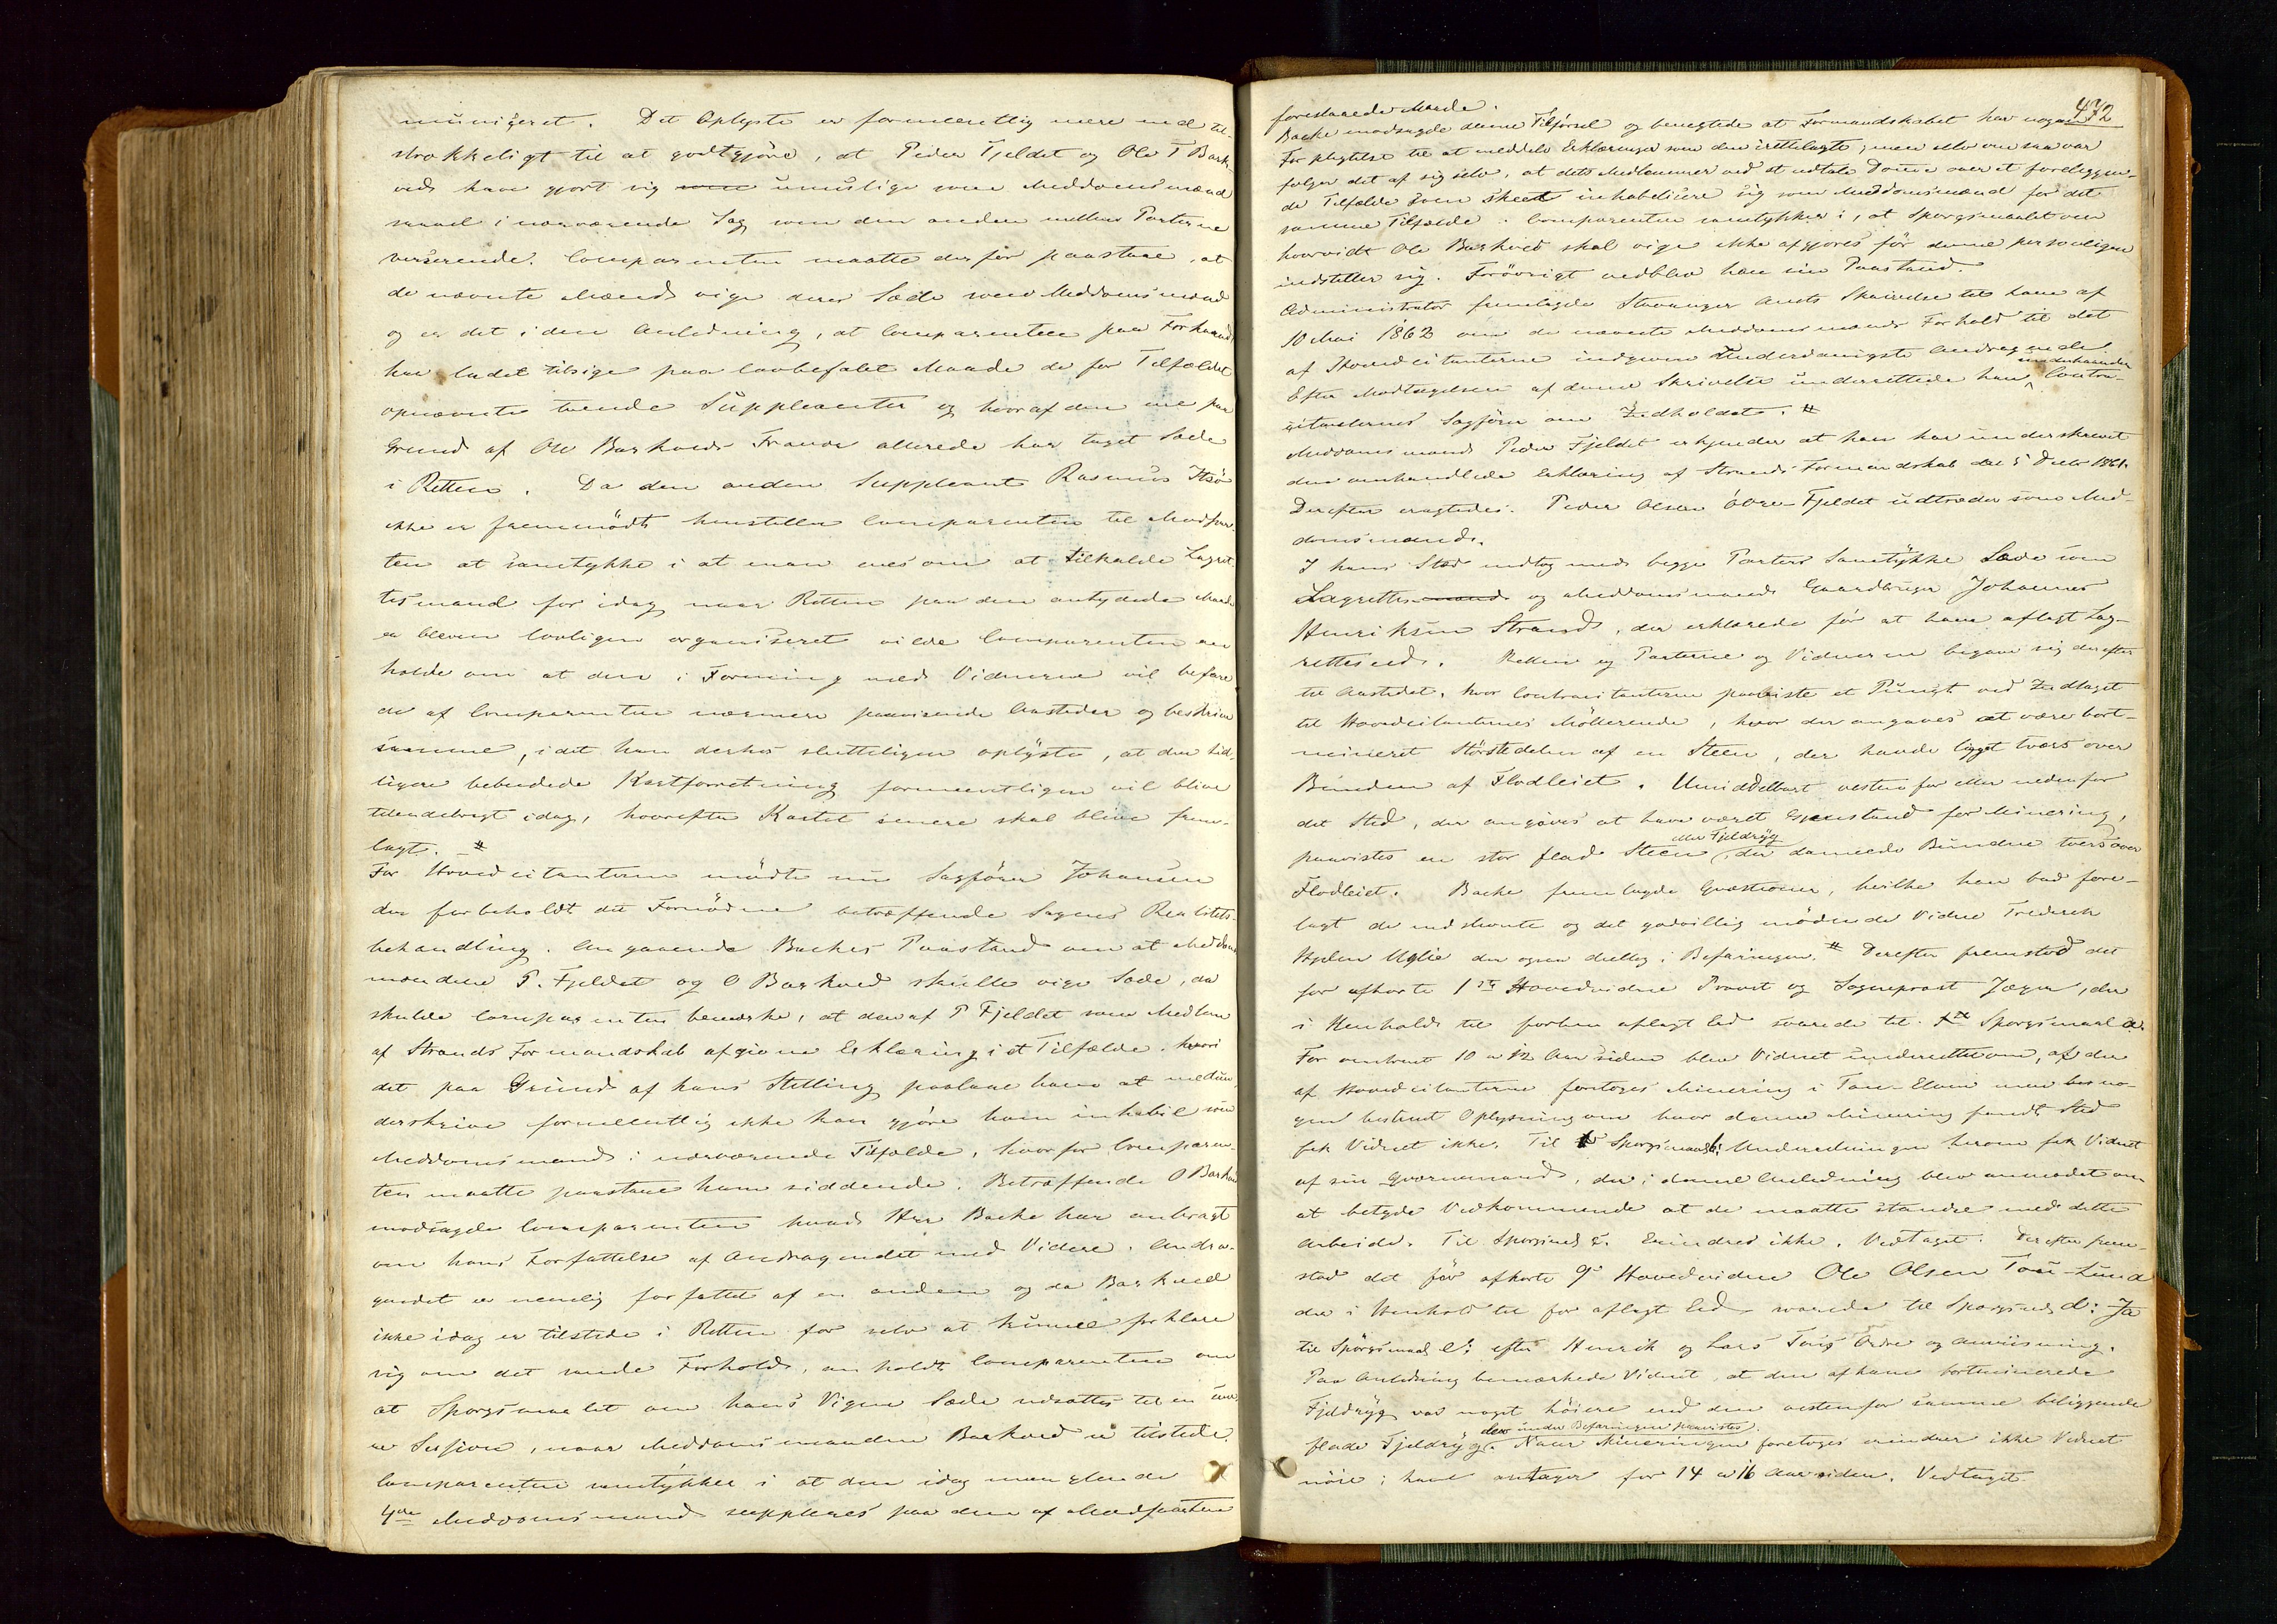 municeret. Det Oplyste er formeentlig mere end til-
strækkeligt til at godtgjøre, at Peder Fjeldet og Ole T Bark-
ved have gjort sig umulige som Meddomsmænd
saavel i nærværende Sag som den anden mellem Parterne
verserende. Comparenten maatte derfor paastaae, at
de nævnte Mænd vige deres Sæde som Meddomsmænd
og er det i den Anledning, at Comparenten paa Forhaand
har ladet tilsige paa lovbefalet Maade de for Tilfældet
opnævnte tvende Suppleanter og hvoraf den ene paa
Grund af Ole Barkveds Fravær allerede har taget Sæde
i Retten. Da den anden Suppleant Rasmus
ikke er fremmødt henstiller Comparenten til Modpar-
ten at samtykke i at man enes om at tilkalde Lagret-
tesmand for idag, naar Retten paa den antydede Maade
er bleven lovligen organiseret vilde Comparenten an-
holde om at den i Forening med Vidnerne vil befare
de af Comparenten nærmere paavisende Aasteder og beskrive
samme, idet han derhos slutteligen oplyste, at den tid-
ligere bebudede Kartforretning formeentligen vil blive
tilendebragt idag, hvorefter Kartet senere skal blive frem-
lagt. #
For Hovedcitanterne mødte nu Sagfører Johansen
der forbeholdt det Fornødne betræffende Sagens Realitets-
behandling. Angaaende Backes Paastand om at Meddoms-
mændene P. Fjeldet og O Barkved skulle vige Sæde, da
skulde Comparenten bemærke, at den af P Fjeldet som Medlem
af Strands Formandskab afgivne Erklæring i et Tilfælde, hvori
det paa Grund af hans Stilling paalaae ham at medun-
derskrive formeentlig ikke kan gjøre ham inhabil som
Meddomsmand i nærværende Tilfælde, hvorfor Comparen-
ten maatte paastaae ham siddende. Betræffende O Barkved
modsagde Comparenten hvad Herr Backe har anbragt
om hans Forfattelse af Andragendet med Videre. Andra-
gendet er nemlig forfattet af en anden og da Barkved
ikke idag er tilstede i Retten for selv at kunne forklare
sig om det sande Forhold, anholdt Comparenten om
at Spørgsmaalet om hans Vigen Sæde udsættes til en
Session, naar Meddomsmanden Barkved er tilstede.
Comparenten samtykker i at den idag manglende
4de Meddomsmand suppleres paa den af Modparten
472
foreslaaede Maade.
Backe modsagde denne Tilførsel og benegtede at Formandskabet har nogen
Forpligtelse til at meddele Erklæringer som den irettelagte; men selv om saa var
følger det af sig selv, at dets Medlemmer ved at udtale Domme over et foreliggen-
de Tilfælde som skeet inhabilisere sig som Meddomsmænd for det
samme Tilfælde. Comparenten samtykker i, at Spørgsmaalet om
hvorvidt Ole Barkved skal vige ikke afgjøres før denne personligen
indstiller sig. Forøvrigt vedblev han sin Paastand.
Administrator fremlagde Stavanger Amts Skrivelse til ham af
10 Mai 1862 om de nævnte Meddomsmænds Forhold til det
af Hovedcitanterne indgivne Underdanigste Andragende
Efter Modtagelsen af denne Skrivelse underrettede han underhaanden Contra-
citanternes Sagfører om Indholdet. #
Meddomsmand Peder Fjeldet erkjender at han har underskrevet
den omhandlede Erklæring af Strands Formandskab dat 5 Decbr 1861.
Derefter eragtedes: Peder Olsen Øvre-Fjeldet udtræder som Med-
domsmand.
I hans Sted indtog med begge Parters Samtykke Sæde som
Lagrettesmand og Meddomsmand Gaardbruger Johannes
Henriksen Strand, der erklærede før at have aflagt Lag-
retteseed. Retten og Parterne og Vidnerne begave sig derefter
til Aastedet, hvor Contracitanterne paaviste et Punct ved Indtaget
til Hovedcitanternes Møllerende, hvor der angaves at være bort-
mineret Størstedelen af en Steen, der havde ligget tværs over
Bunden af Flodleiet. Umiddelbart vestenfor eller nedenfor
det Sted, der angaves at have været Gjenstand for Minering,
paavistes en stor flad Steen eller Fjeldryg, der dannede Bunden tvers over
Flodleiet. Backe fremlagde Qvæstioner, hvilke han bad fore-
lagt de indstævnte og det godvillig mødende Vidne Frederik
Uglie der ogsaa deeltog i Befaringen. # Derefter fremstod det
før afhørte 1ste Hovedvidne Provst og Sogneprest Jæger, der
i Henhold til forhen aflagt Eed svarede til Spørgsmaal a
For omtrent 10 a 12 Aar siden blev Vidnet underrettet om, at der
af Hovedcitanterne foretoges Minering i Tau-Elven men nær no-
gen bestemt Oplysning om hvor denne Minering fandt Sted
fik Vidnet ikke. Til Spørgsmaal b: Underretningen herom fik Vidnet
af sin Qværnemand, der i denne Anledning blev anmodet om
at betyde Vedkommende at de maatte standse med dette
Arbeide. Til Spørgsmaal c. Erindres ikke. Vedtaget. Derefter frem-
stod det før afhørte 9de Hovedvidne Ole Olsen Tau-Lund
der i Henhold til før aflagt Eed svarede til Spørgsmaal d: Ja
til Spørgsmaal e: efter Henrik og Lars Tous Ordre og Anvisning.
Paa Anledning bemærkede Vidnet, at den af ham bortminerede
Fjeldryg var noget høiere end den vestenfor samme beliggende
flade Fjeldryg. den under Befaringen paavistes. Naar Mineringen foretoges erindrer ikke Vidnet
nøie; han antager for 14 a 16 Aar siden. Vedtaget